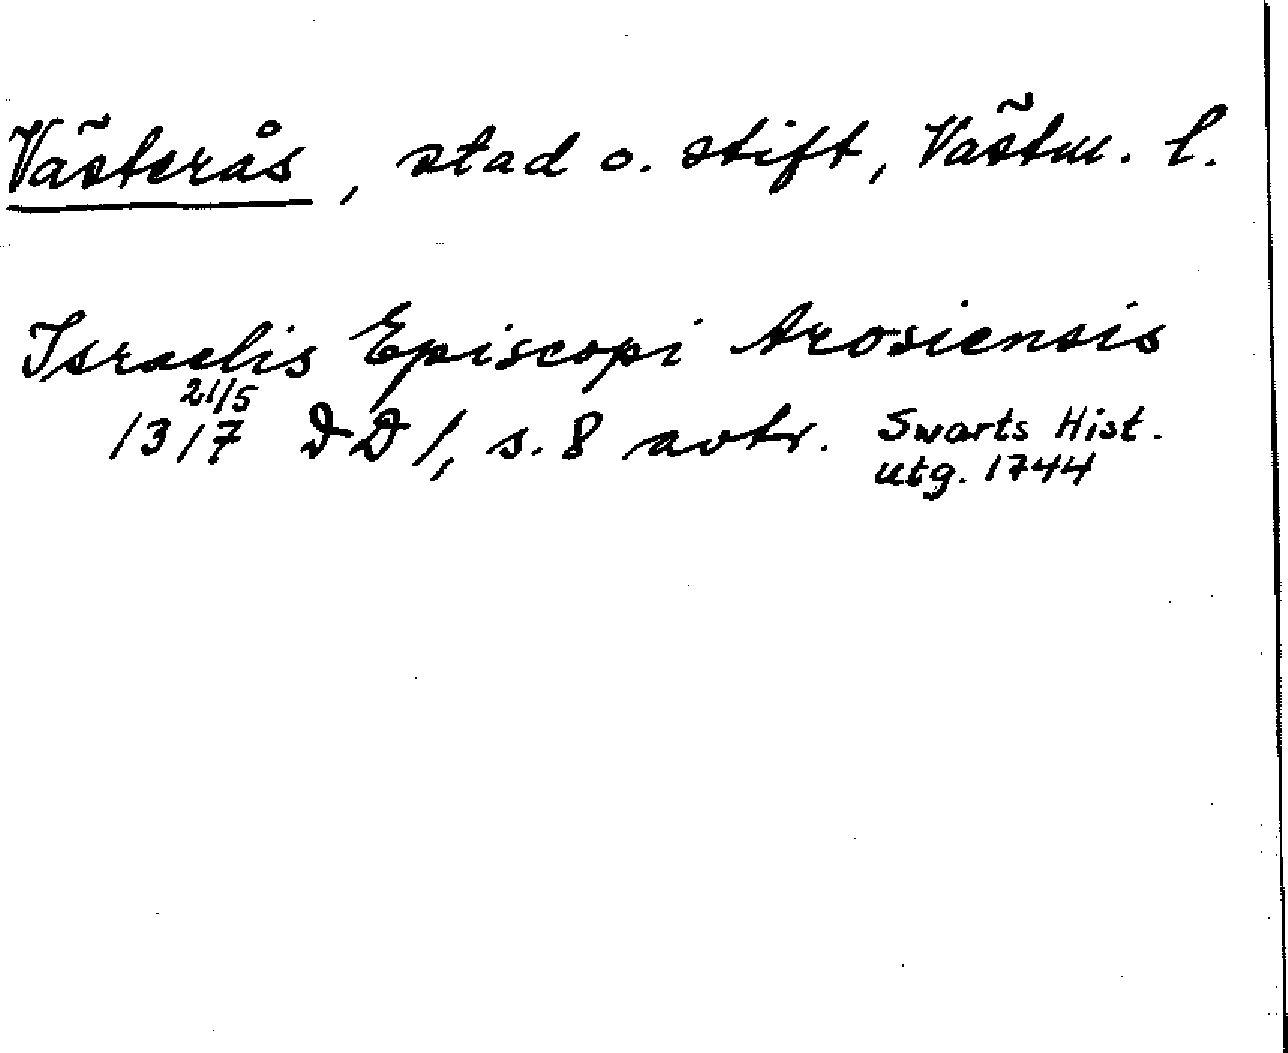 Västerås, stad o. stift, Västm. l.
Israelis Episcopi Arosiensis
1317 21/5 DD 1, s. 8 avtr. Swarts Hist.
utg. 1744